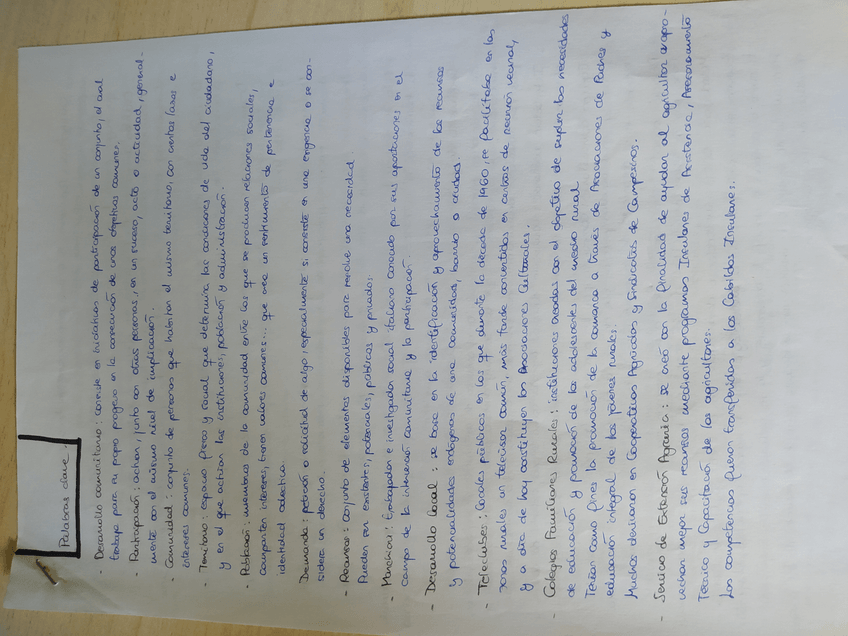 Palabras clave:
- Desarrollo comunitario: consiste en iniciativas de participación de un conjunto, el cual
trabaja para su propio progreso en la consecución de unos objetivos comunes.
- Participación: actúan, junto con otras personas, en un suceso, acto o actividad, general-
mente con el mismo nivel de implicación.
- Comunidad: conjunto de personas que habitan el mismo territorio, con ciertos lazos e
intereses comunes.
- Territorio: espacio físico y social que determina las condiciones de vida del ciudadano,
y en el que actúan las instituciones, población y administración.
- Población: miembros de la comunidad entre los que se producen relaciones sociales,
comparten intereses, tienen valores comunes... que crea un sentimiento de pertenencia e
identidad colectiva.
Demanda: petición o solicitud de algo, especialmente si consiste en una exigencia o se con-
sidera un derecho.
- Recursos: conjunto de elementos disponibles para resolver una necesidad.
Pueden ser existentes, potenciales, públicos y privados.
- Marchioni: trabajador e investigador social italiano conocido por sus aportaciones en el
campo de la intervención comunitaria y la participación.
- Desarrollo local: se basa en la identificación y aprovechamiento de los recursos
y potencialidades endógenas de una comunidad, barrio o ciudad.
- Teleclubes: locales públicos en los que durante la década de 1960, se facilitaba en las
zonas rurales un televisor común, más tarde convertidos en centros de reunión vecinal,
y a día de hoy constituyen las Asociaciones Culturales.
- Colegios Familiares Rurales: instituciones creadas con el objetivo de suplir las necesidades
de educación y promoción de los adolescentes del medio rural
Tenían como fines la promoción de la comarca a través de Asociaciones de Padres y
educación integral de los jóvenes rurales.
Muchos derivaron en Cooperativas Agrícolas y Sindicatos de Campesinos.
- Servicio de Extensión Agraria: se creó con la finalidad de ayudar al agricultor a apro-
vechar mejor sus recursos mediante programas Insulares de Asistencia, Asesoramiento
Técnico y Capacitación de los agricultores.
Las competencias fueron transferidas a los Cabildos Insulares.